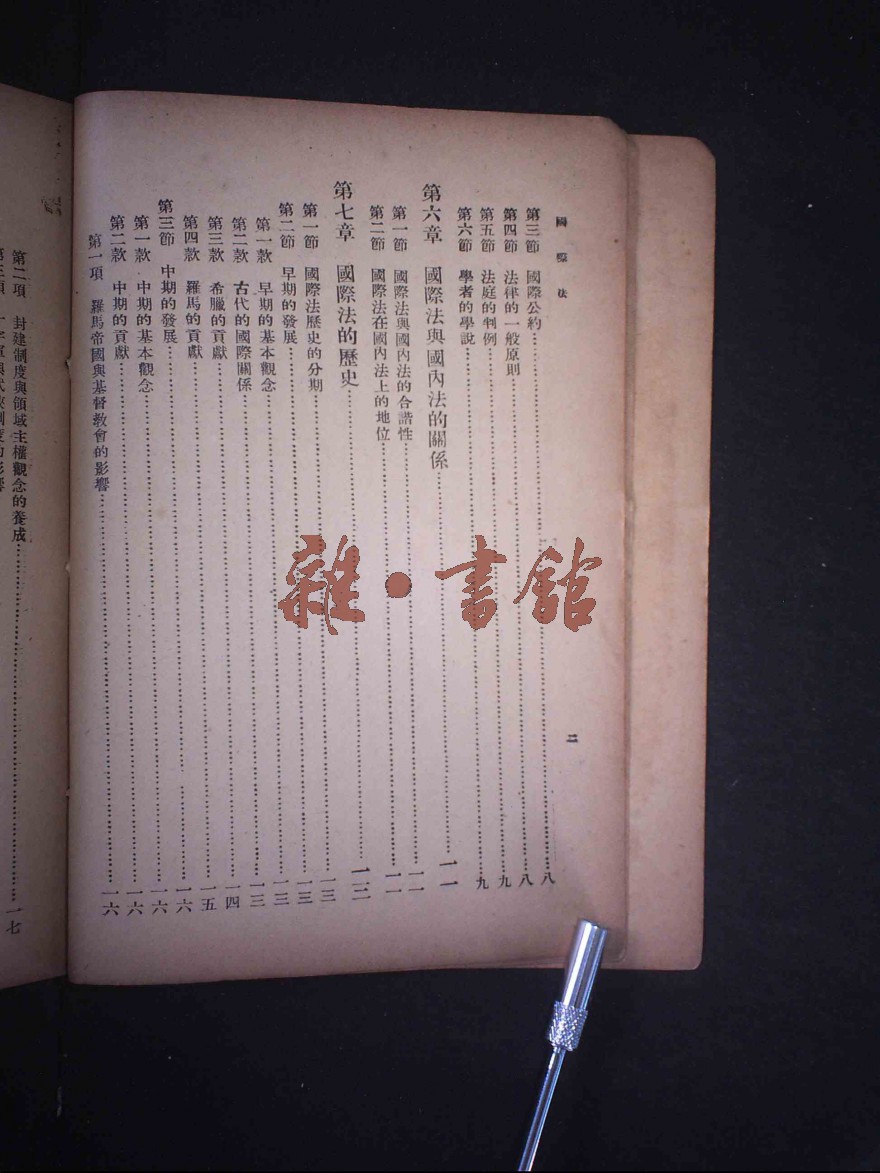 國際法
二
第三節 國際公約……八
第四節 法律的一般原則……八
第五節 法庭的判例……九
第六節 學者的學說……九
第六章 國際法與國內法的關係……一一
第一節 國際法與國內法的合諧性……一一
第二節 國際法在國內法上的地位……一一
第七章 國際法的歷史……一三
第一節 國際法歷史的分期……一三
第二節 早期的發展……一三
第一款 早期的基本觀念……一三
第二款 古代的國際關係……一三
第三款 希臘的貢獻……一四
第四款 羅馬的貢獻……一五
第三節 中期的發展……一六
第一款 中期的基本觀念……一六
第二款 中期的貢獻……一六
第一項 羅馬帝國與基督教會的影響……一六
第二項 封建制度與領域主權觀念的養成……一七
雜·書館